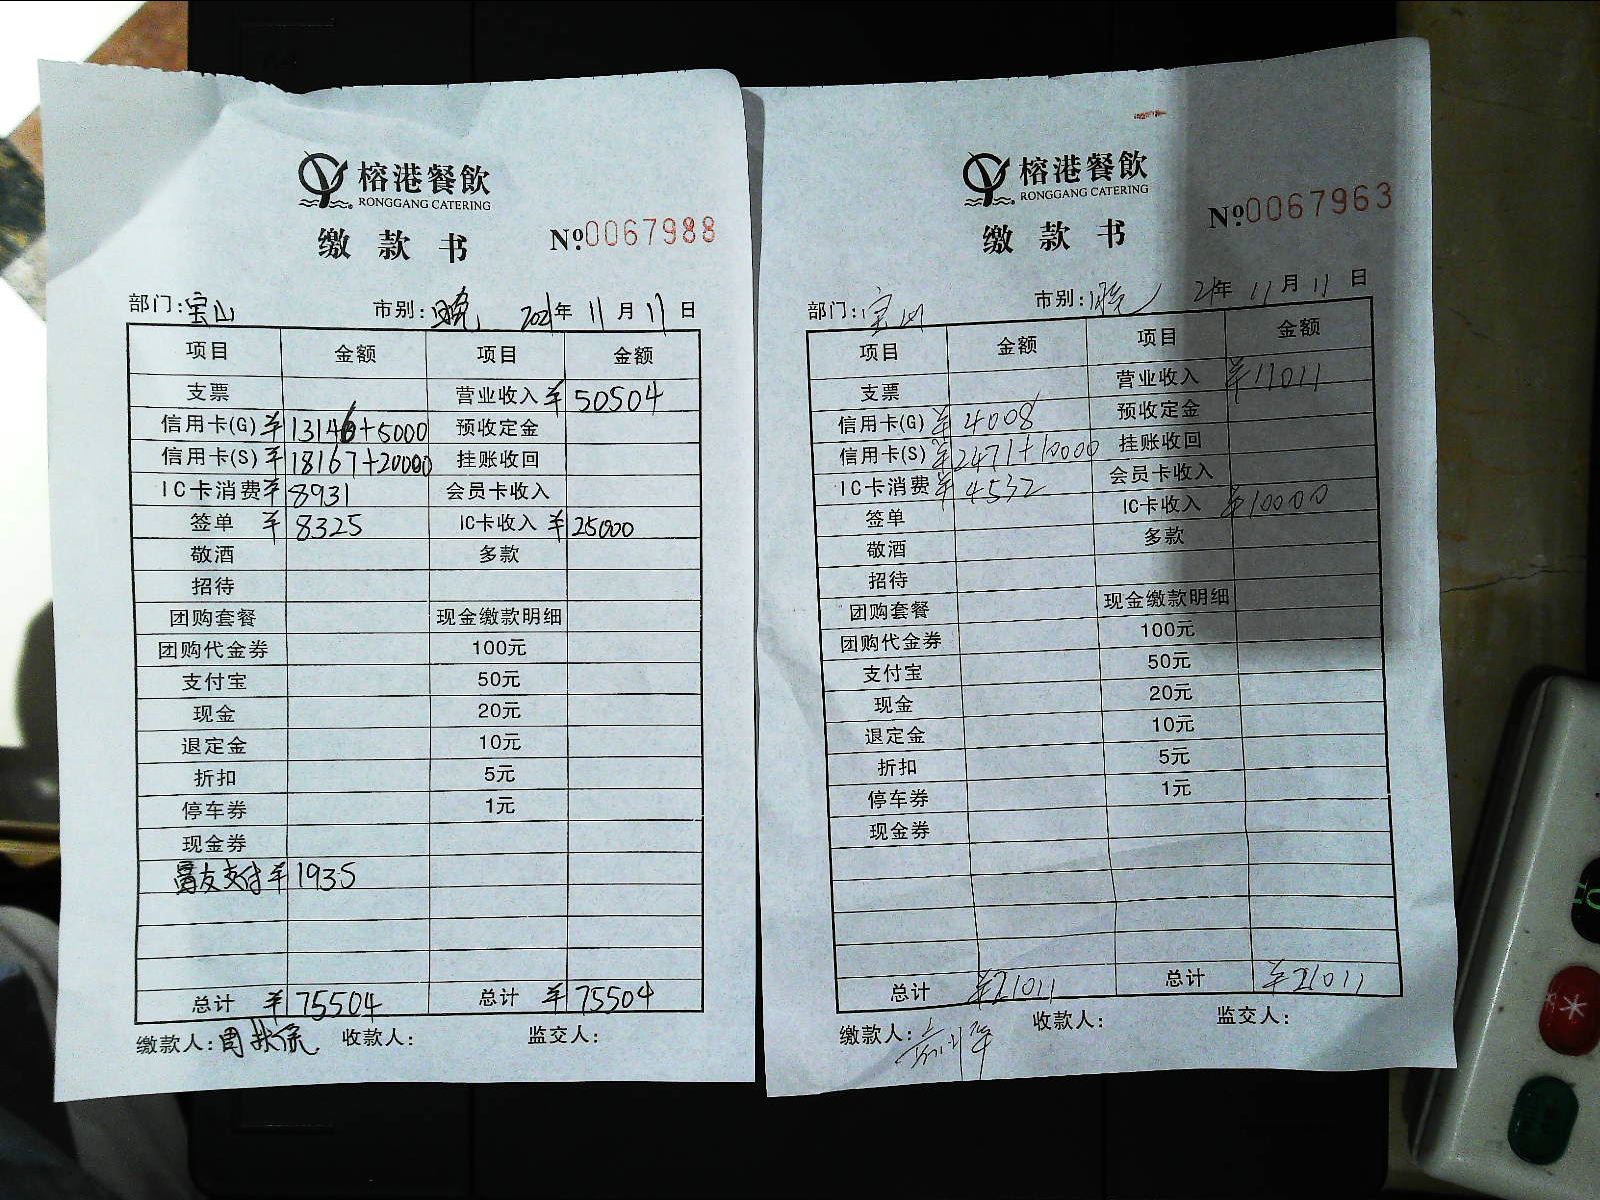 榕港餐飲
RONGGANG CATERING
缴款书 №0067988
部门:宝山 市别:晚 2021年11月11日
项目 金额 项目 金额
支票 营业收入 ¥50504
信用卡(G) ¥13146+5000 预收定金
信用卡(S) ¥18167+20000 挂账收回
IC卡消费 ¥8931 会员卡收入
签单 ¥8325 IC卡收入 ¥25000
敬酒 多款
招待
团购套餐 现金缴款明细
团购代金券 100元
支付宝 50元
现金 20元
退定金 10元
折扣 5元
停车券 1元
现金券
支付 ¥1935
总计 ¥75504 总计 ¥75504
缴款人: 收款人: 监交人:
榕港餐飲
RONGGANG CATERING
缴款书 №0067963
部门:宝山 市别:晚 21年11月11日
项目 金额 项目 金额
支票 营业收入 ¥11011
信用卡(G) ¥4008 预收定金
信用卡(S) ¥2471+10000 挂账收回
IC卡消费 ¥4532 会员卡收入
签单 IC卡收入 ¥10000
敬酒 多款
招待
团购套餐 现金缴款明细
团购代金券 100元
支付宝 50元
现金 20元
退定金 10元
折扣 5元
停车券 1元
现金券
总计 ¥21011 总计 ¥21011
缴款人: 收款人: 监交人: